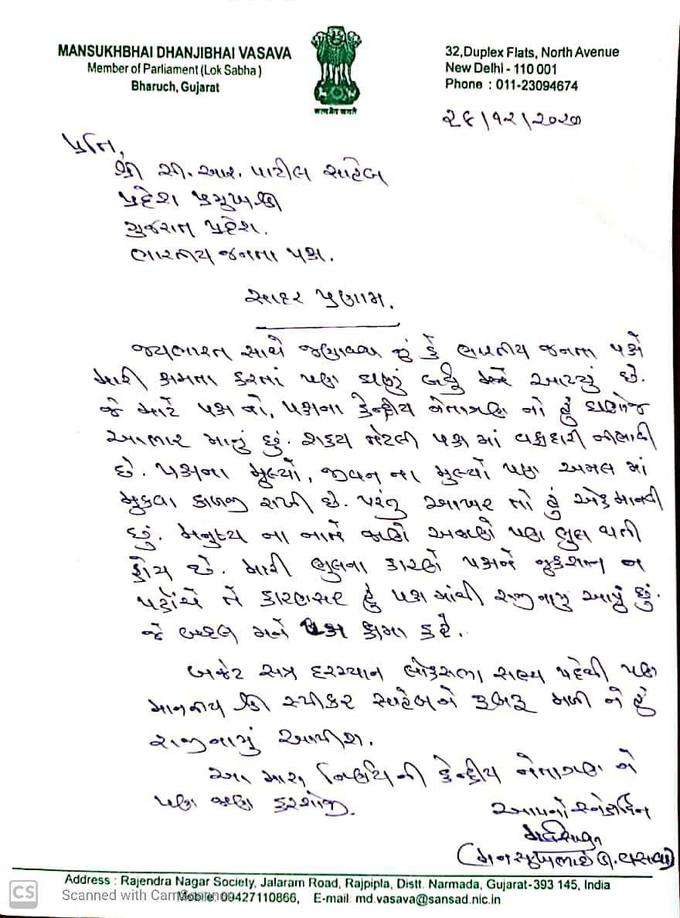 MANSUKHBHAI DHANJIBHAI VASAVA
Member of Parliament (Lok Sabha)
Bharuch, Gujarat
सत्यमेव जयते
32,Duplex Flats, North Avenue
New Delhi - 110 001
Phone : 011-23094674
૨૮/૧૨/૨૦૨૦
પ્રતિ,
શ્રી સી. આર. પાટીલ સાહેબ
પ્રદેશ પ્રમુખશ્રી
ગુજરાત પ્રદેશ.
ભારતીય જનતા પક્ષ.
સાદર પ્રણામ.
જયભારત સાથે જણાવવાનું કે ભારતીય જનતા પક્ષે
મારી ક્ષમતા કરતાં પણ ઘણું બધું મને આપ્યું છે.
જે માટે પક્ષનો, પક્ષના કેન્દ્રીય નેતાગણ નો હું ઘણોજ
આભાર માનું છું. શક્ય તેટલી પક્ષ માં વફાદારી નીભાવી
છે. પક્ષના મુલ્યો, જીવન ના મુલ્યો પણ અમલ માં
મુકવા કાળજી રાખી છે. પરંતુ આખરે તો હું એક માનવી
છું. મનુષ્ય ના નાતે જાણે અજાણે પણ ભુલ થતી
હોય છે. મારી ભુલના કારણે પક્ષને નુકશાન ન
પહોંચે તે કારણસર હું પક્ષ માંથી રાજીનામુ આપું છું.
જે બદલ મને પક્ષ ક્ષમા કરે.
બજેટ સત્ર દરમ્યાન લોકસભા સભ્ય પદેથી પણ
માનનીય શ્રી સ્પીકર સાહેબને રૂબરૂ મળી ને હું
રાજીનામું આપીશ.
આ મારા નિર્ણય ની કેન્દ્રીય નેતાગણ ને
પણ જાણ કરશોજી.
આપનો સ્નેહાધિન
(મનસુખભાઈ ડી. વસાવા)
Address : Rajendra Nagar Society, Jalaram Road, Rajpipla, Distt. Narmada, Gujarat-393 145, India
09427110866, E-mail: md.vasava@sansad.nic.in
CS Scanned with